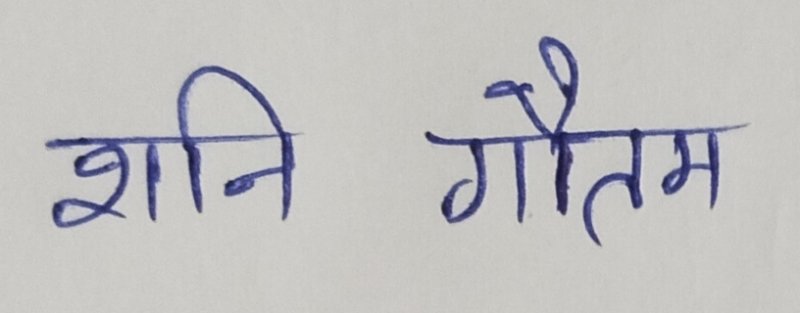 शनि गौतम